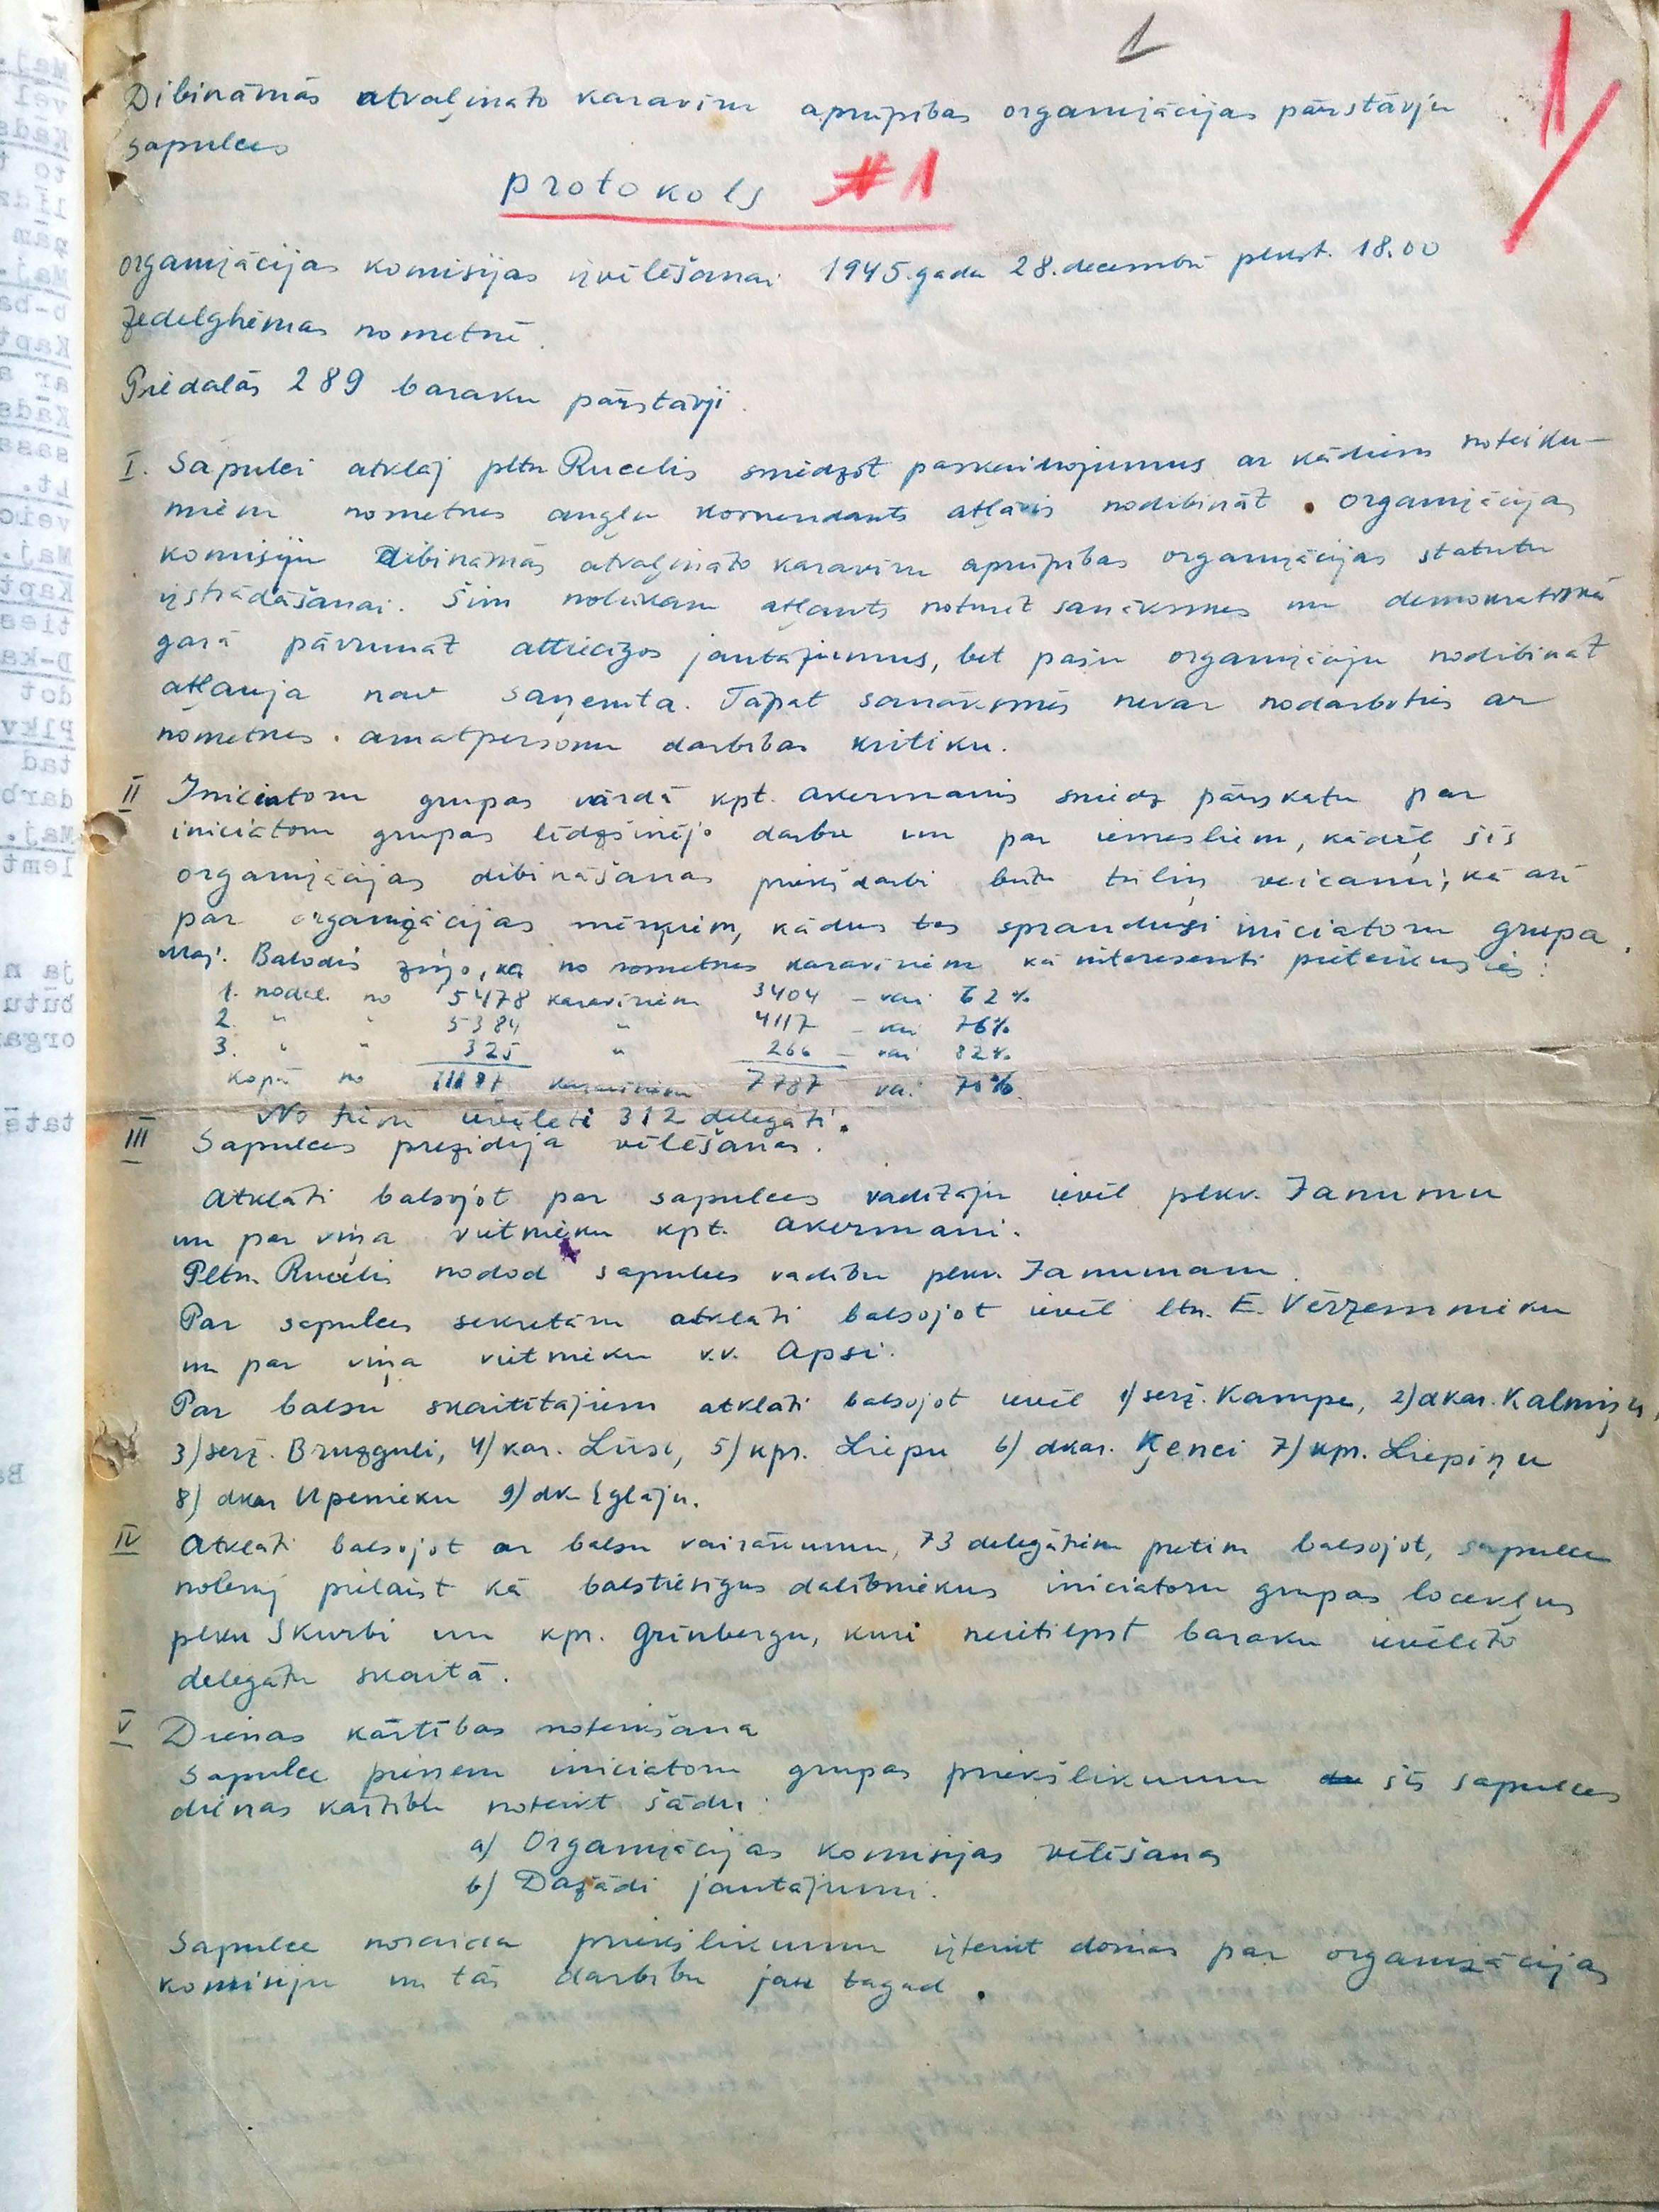 1
1/
Dibināmās atvaļināto karavīru aprūpības organizācijas pārstāvju
sapulces
protokols #1
organizācijas komisijas izvēlēšanai 1945.gada 28.decembrī plkst. 18.00
Zedelghēmas nometnē.
Piedalās 289 baraku pārstāvji.
I. Sapulci atklāj pltn Rucelis sniedzot paskaidrojumus ar kādiem noteiku-
miem nometnes angļu komendants atļāvis nodibināt organizācijas
komisiju dibināmās atvaļināto karavīru aprūpības organizācijas statutu
izstrādāšanai. Šim nolūkam atļauts noturēt sanāksmes un demokratiskā
garā pārrunāt attiecīgos jautājumus, bet pašu organizāciju nodibināt
atļauja nav saņemta. Tāpat sanāksmēs nevar nodarboties ar
nometnes amatpersonu darbības kritiku.
II Iniciatoru grupas vārdā kpt. Akermanis sniedz pārskatu par
iniciatoru grupas līdzšinējo darbu un par iemesliem, kādēļ šīs
organizācijas dibināšanas priekšdarbi būtu tūliņ veicami, kā arī
par organizācijas mērķiem, kādus tos spraudusi iniciatoru grupa.
Maj. Balodis ziņo, ka no nometnes karavīriem kā interesenti pieteikušies:
1. nodal. no 5478 karavīriem 3404 – vai 62%
2. " " 5384 " 4117 – vai 76%
3. " " 325 " 266 – vai 82%
Kopā no 11187 karavīriem 7787 vai 70%
No tiem ievēlēti 312 delegāti.
III Sapulces prezidija vēlēšanas.
Atklāti balsojot par sapulces vadītāju ievēl plkv. Janumu
un par viņa vietnieku kpt. Akermani.
Pltn. Rucelis nodod sapulces vadību plkv. Janumam.
Par sapulces sekretāru atklāti balsojot ievēl ltn. E. Vērzemnieku
un par viņa vietnieku v.v. Apsi.
Par balsu skaitītājiem atklāti balsojot ievēl 1) serž. Kampe, 2) dkar. Kalniņu,
3) serž. Bruzguli, 4) kar. Lūsi, 5) kpr. Liepu 6) dkar. Ķenci 7) kpr. Liepiņu
8) dkar Upenieku 9) dk Eglāju.
IV Atklāti balsojot ar balsu vairākumu, 73 delegātiem pretim balsojot, sapulce
nolemj pielaist kā balstiesīgus dalībniekus iniciatoru grupas locekļus
plkv Skurbi un kpr. Grīnbergu, kuri neietilpst baraku ievēlēto
delegātu skaitā.
V Dienas kārtības noteikšana
Sapulce pieņem iniciatoru grupas priekšlikumu šīs sapulces
dienas kārtību noteikt šādu:
a) Organizācijas komisijas vēlēšanas
b) Dažādi jautājumi.
Sapulce noraida priekšlikumu izteikt domas par organizācijas
komisiju un tās darbību jau tagad.